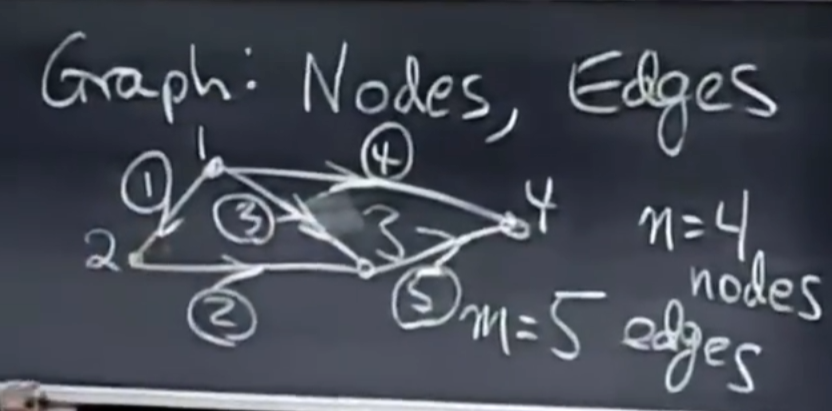 Graph: Nodes, Edges
1
4
1
3
3
4
2
2
5
n=4
nodes
m=5 edges